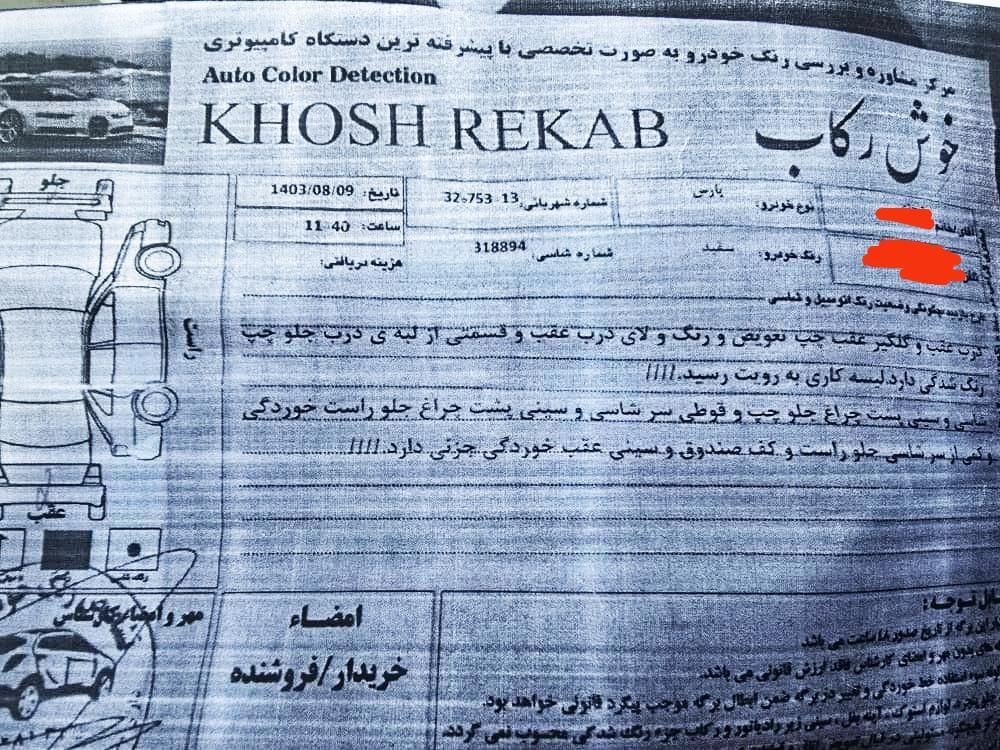 مرکز مشاوره و بررسی رنگ خودرو به صورت تخصصی با پیشرفته ترین دستگاه کامپیوتری
Auto Color Detection
KHOSH REKAB
خوش رکاب
نوع خودرو: پارس
شماره شهربانی: 13 753ه32
تاریخ: 1403/08/09
رنگ خودرو: سفید
شماره شاسی: 318894
ساعت: 11:40
هزینه دریافتی:
وضعیت رنگ اتومبیل و شاسی
درب عقب و گلگیر عقب چپ تعویض و رنگ و لای درب عقب و قسمتی از لبه ی درب جلو چپ
رنگ شدگی دارد.لیسه کاری به رویت رسید.////
شاسی و سینی پشت چراغ جلو چپ و قوطی سر شاسی و سینی پشت چراغ جلو راست خوردگی
و کمی از سر شاسی جلو راست و کف صندوق و سینی عقب خوردگی جزئی دارد.////
جلو
راست
عقب
مهر و امضاء کارشناس
امضاء
خریدار/فروشنده
قابل توجه:
این برگه از تاریخ صدور ۱۸ ساعت می باشد
بدون مهر و امضای کارشناس فاقد ارزش قانونی می باشد.
سوء استفاده خط خوردگی و تغییر در برگه ضمن ابطال برگه موجب پیگرد قانونی خواهد بود.
سینی زیر رادیاتور و رکاب جزء رنگ شدگی محسوب نمی گردد